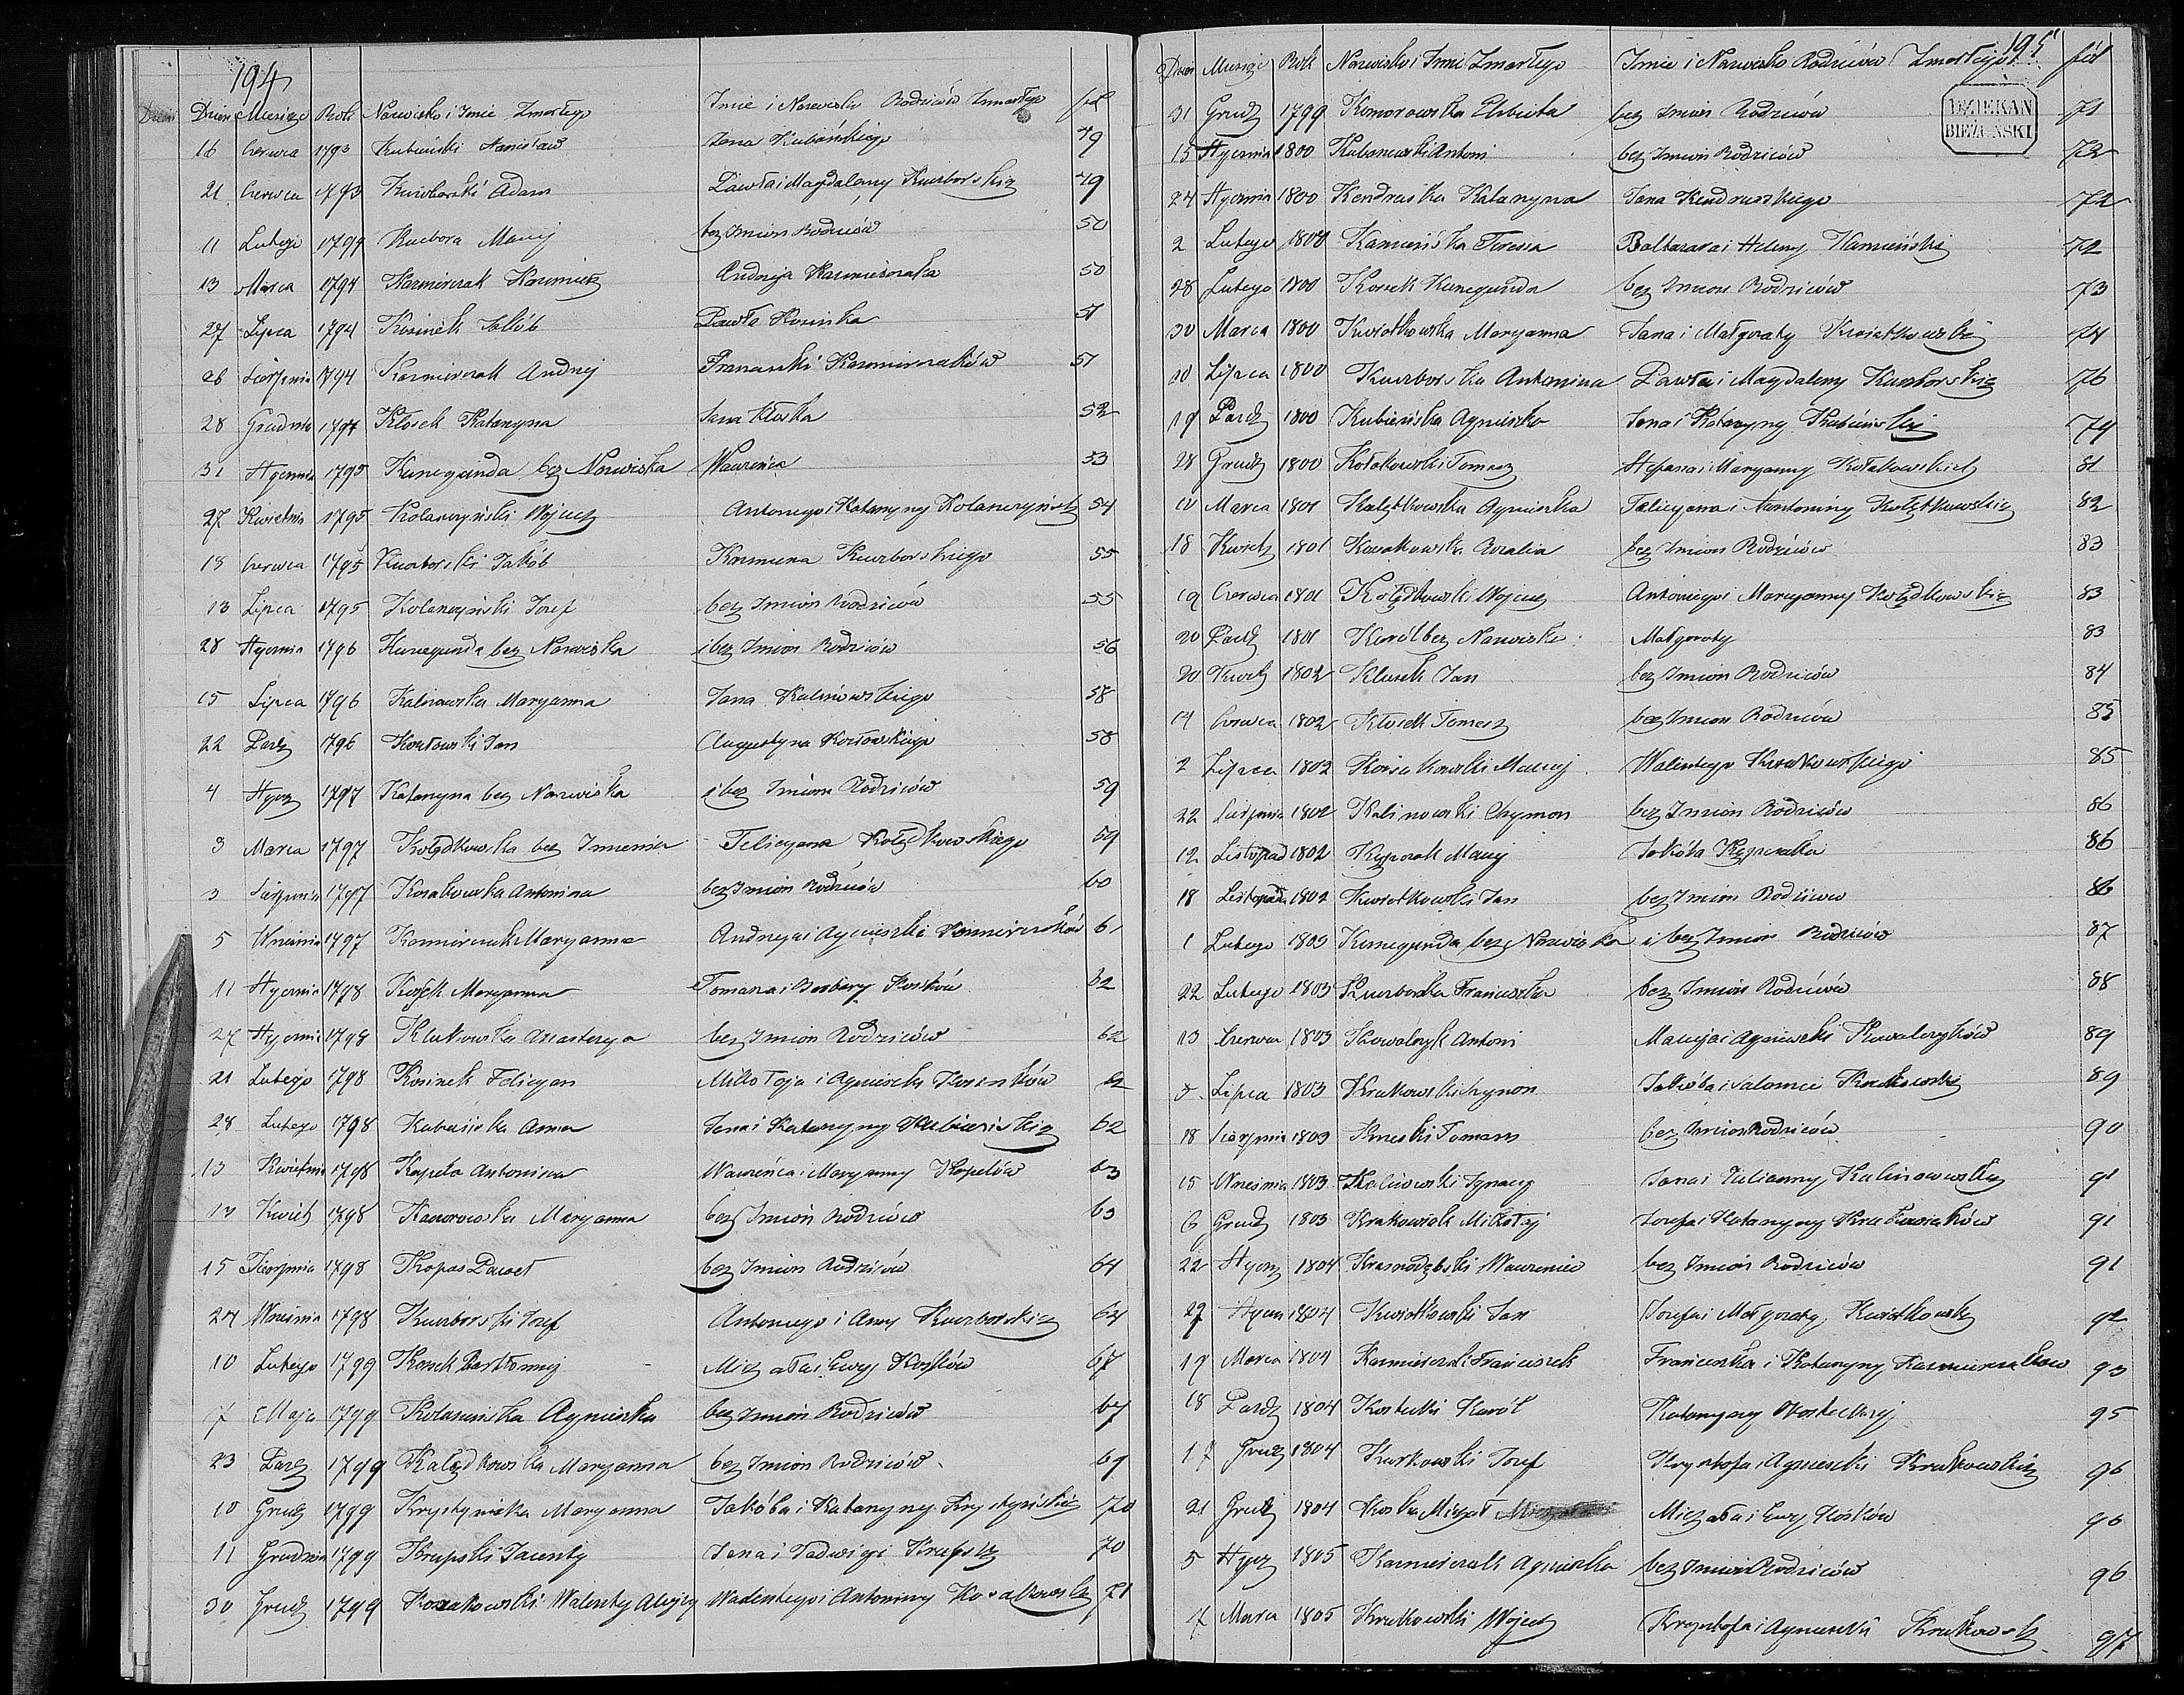 194
Dzień Miesiąc Rok Nazwisko i Imie Zmarłego Imie i Nazwisko Rodziców Zmarłego fol
16 Czerwca 1793 Kubiński Stanisław Jana Kubińskiego 49
21 Czerwca 1793 Kuczborski Adam Pawła i Magdaleny Kuczborskich 49
11 Lutego 1794 Kucbora Maciej bez Imion Rodziców 50
13 Marca 1794 Kazmierczak Kazimierz Andrzeja Kazmierczaka 50
27 Lipca 1794 Kosinek Jakób Pawła Kosinka 51
26 Sierpnia 1794 Kazmierczak Andrzej Franciszki Kazmierczaków 51
28 Grudnia 1794 Kłosek Katarzyna Jana Kłoska 52
31 Stycznia 1795 Kunegunda bez Nazwiska Wawrzeńca 53
27 Kwietnia 1795 Kolanczyński Wojciech Antoniego i Katarzyny Kolanczyńskich 54
18 Czerwca 1795 Kuczborski Jakób Kazimierza Kuczborskiego 55
13 Lipca 1795 Kolanczyński Jozef bez Imion Rodziców 55
28 Stycznia 1796 Kunegunda bez Nazwiska i bez Imion Rodziców 56
15 Lipca 1796 Kalinowska Maryanna Jana Kalinowskiego 58
22 Pazdz 1796 Kozłowski Jan Augustyna Kozłowskiego 58
4 Stycz 1797 Katarzyna bez Nazwiska i bez Imion Rodziców 59
3 Marca 1797 Kołądkowska bez Imienia Felicyana Kołądkowskiego 59
3 Sierpnia 1797 Kosakowska Antonina bez Imion Rodziców 60
5 Wrzesnia 1797 Kazmierczak Maryanna Andrzeja i Agnieszki Kazmierczaków 61
11 Stycznia 1798 Kosek Maryanna Tomasza i Barbary Kosków 62
27 Stycznia 1798 Klukowska Anastazya bez Imion Rodziców 62
21 Lutego 1798 Kosinek Felicyan Mikołaja i Agnieszki Kosinków 62
28 Lutego 1798 Kubińska Anna Jana i Katarzyny Kubińskich 62
13 Kwietnia 1798 Kapela Antonina Wawrzeńca i Maryanny Kapelów 63
13 Kwiet 1798 Kaczorowska Maryanna bez Imion Rodziców 63
15 Sierpnia 1798 Kopas Paweł bez Imion Rodziców 64
24 Wrzesnia 1798 Kuczborski Jozef Antoniego i Anny Kuczborskich 64
10 Lutego 1799 Kosek Bartłomiej Michała i Ewy Kosków 67
7 Maja 1799 Kolasinska Agnieszka bez Imion Rodziców 67
23 Pazdz 1799 Kalędkowska Maryanna bez Imion Rodziców 69
10 Grudz 1799 Krystyniaka Maryanna Jakóba i Katarzyny Krystyńskich 70
11 Grudnia 1799 Krupski Jacenty Jana i Jadwigi Krupskich 70
30 Grudz 1799 Kosakowski Walenty Alojzy Walentego i Antoniny Kosakowskich 71
195
Dzien Miesiąc Rok Nazwisko i Imie Zmarłego Imie i Nazwisko Rodziców Zmarłego fol
DZIEKAN
BIEŻUŃSKI
31 Grudz 1799 Komorowska Elzbieta bez Imion Rodziców 71
15 Stycznia 1800 Kubanowski Antoni bez Imion Rodziców 72
24 Stycznia 1800 Kendruska Katarzyna Jana Kendruskiego 72
2 Lutego 1800 Kamieńska Teresia Baltazara i Heleny Kamieńskich 72
28 Lutego 1800 Kosek Kunegunda bez Imion Rodziców 73
30 Marca 1800 Kwiatkowska Maryanna Jana i Małgorzaty Kwiatkowskich 74
30 Lipca 1800 Kuczborska Antonina Pawła i Magdaleny Kuczborskich 76
19 Pazdz 1800 Kubieńska Agnieszka Jana i Katarzyny Kubieńskich 79
28 Grudz 1800 Kołakowski Tomasz Stefana i Maryanny Kołakowskich 81
10 Marca 1801 Kalętkowska Agnieszka Felicyana i Antoniny Kołętkowskich 82
18 Kwiet 1801 Kosakowska Rozalia bez Imion Rodziców 83
19 Czerwca 1801 Kołądkowski Wojciech Antoniego i Maryanny Kołądkowskich 83
20 Pazdz 1801 Karól bez Nazwiska Małgorzaty 83
20 Kwiet 1802 Klusek Jan bez Imion Rodziców 84
14 Czerwca 1802 Kłosek Tomasz bez Imion Rodziców 85
2 Lipca 1802 Kosakowski Maciej Walentego Kosakowskiego 85
22 Sierpnia 1802 Kalinowski Szymon bez Imion Rodziców 86
12 Listopad 1802 Maciej Jakóba 86
18 Listopada 1802 Kwiatkowski Jan bez Imion Rodziców 86
1 Lutego 1803 Kunegunda bez Nazwiska i bez Imion Rodziców 87
22 Lutego 1803 Kuczborska Franciszka bez Imion Rodziców 88
13 Czerwca 1803 Kowalczyk Antoni Macieja i Agnieszki Kowalczyków 89
3 Lipca 1803 Krakowski Szymon Jakóba i Salomei Krakowskich 89
18 Sierpnia 1803 Tomasz bez Imion Rodziców 90
15 Wrzesnia 1803 Kalinowski Ignacy Jana i Julianny Kalinowskich 91
6 Grudz 1803 Krakowiak Mikołaj Jozefa i Katarzyny Krakowiaków 91
22 Stycz 1804 Krasnodębski Wawrzeniec bez Imion Rodziców 91
29 Stycz 1804 Kwiatkowski Jan Jozefa i Małgorzaty Kwiatkowskich 92
19 Marca 1804 Kazmierczak Franciszek Franciszka i Katarzyny Kazmierczaków 93
18 Pazdz 1804 Kostecki Karól Katarzyny Kosteckiej 95
17 Grudz 1804 Kurkowski Jozef Krysztofa i Agnieszki Krukowskich 96
21 Grudz 1804 Koska Michał Michała i Ewy Kosków 96
5 Stycz 1805 Kazmierczak Agnieszka bez Imion Rodziców 96
7 Marca 1805 Krukowski Wojciech Krysztofa i Agnieszki Krukowskich 97